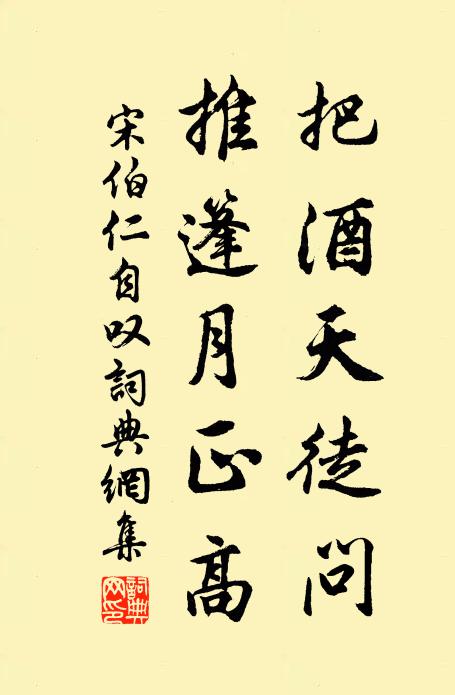 把酒天徒問
推篷月正高
宋伯仁自叹詞典網集
詞典網印